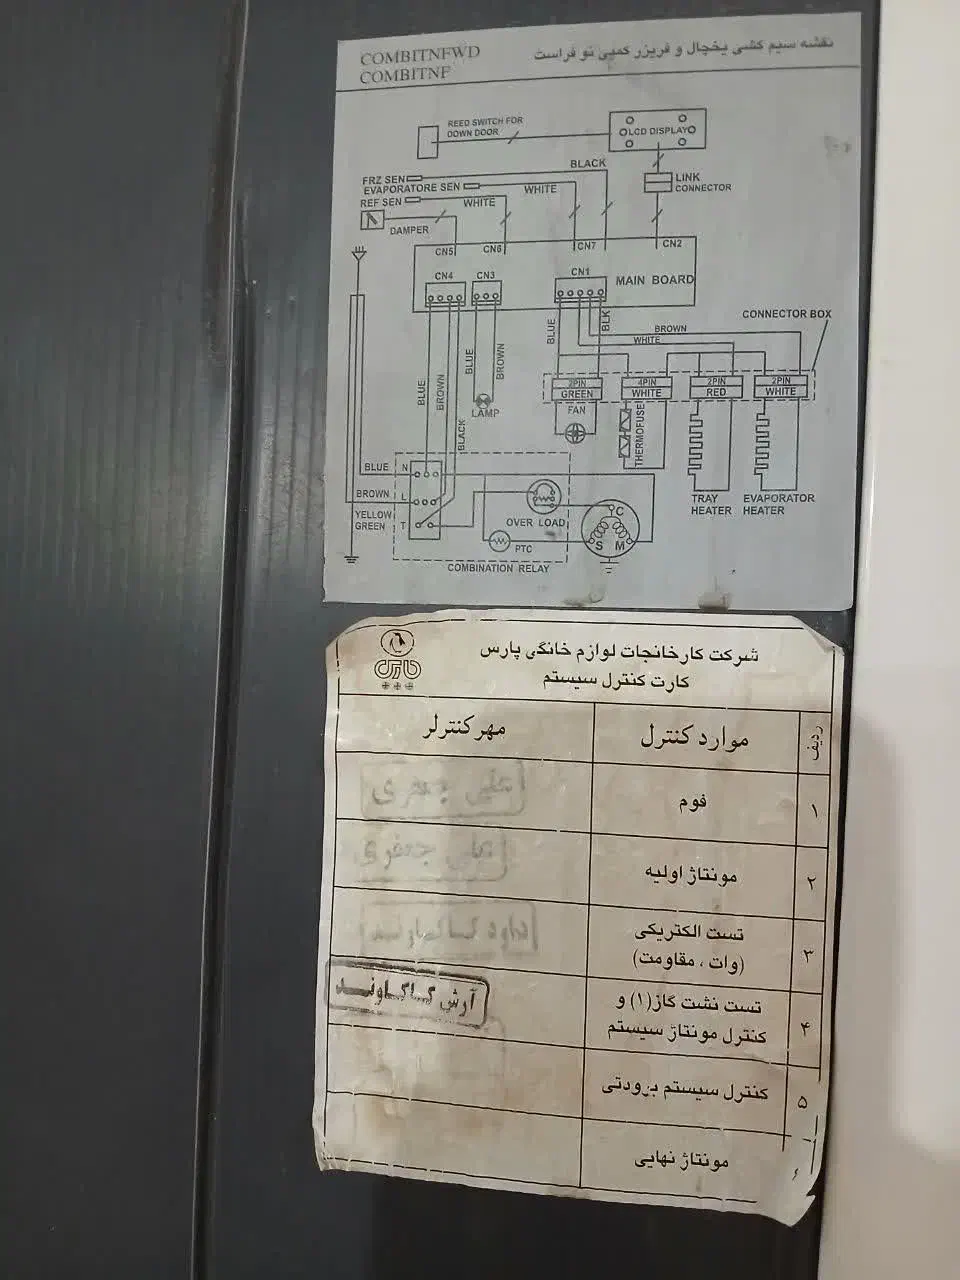 COMBITNFWD
COMBITNF
نقشه سیم کشی یخچال و فریزر کمبی نو فراست
REED SWITCH FOR
DOWN DOOR
LCD DISPLAY
BLACK
FRZ SEN
EVAPORATORE SEN
WHITE
REF SEN
WHITE
LINK
CONNECTOR
DAMPER
CN5
CN6
CN7
CN2
CN4
CN3
CN1
MAIN BOARD
CONNECTOR BOX
BLUE
BLK
BROWN
WHITE
BLUE
BROWN
BLACK
BLUE
BROWN
LAMP
2PIN
GREEN
4PIN
WHITE
2PIN
RED
2PIN
WHITE
FAN
THERMOFUSE
TRAY
HEATER
EVAPORATOR
HEATER
BLUE
N
BROWN
L
YELLOW
GREEN
T
OVER LOAD
PTC
C
S
M
COMBINATION RELAY
شرکت کارخانجات لوازم خانگی پارس
کارت کنترل سیستم
پارس
ردیف
موارد کنترل
مهر کنترلر
۱
فوم
علی جعفری
۲
مونتاژ اولیه
علی جعفری
۳
تست الکتریکی
(وات ، مقاومت)
داود کاکاوند
۴
تست نشت گاز(۱) و
کنترل مونتاژ سیستم
آرش کاکاوند
۵
کنترل سیستم برودتی
۶
مونتاژ نهایی